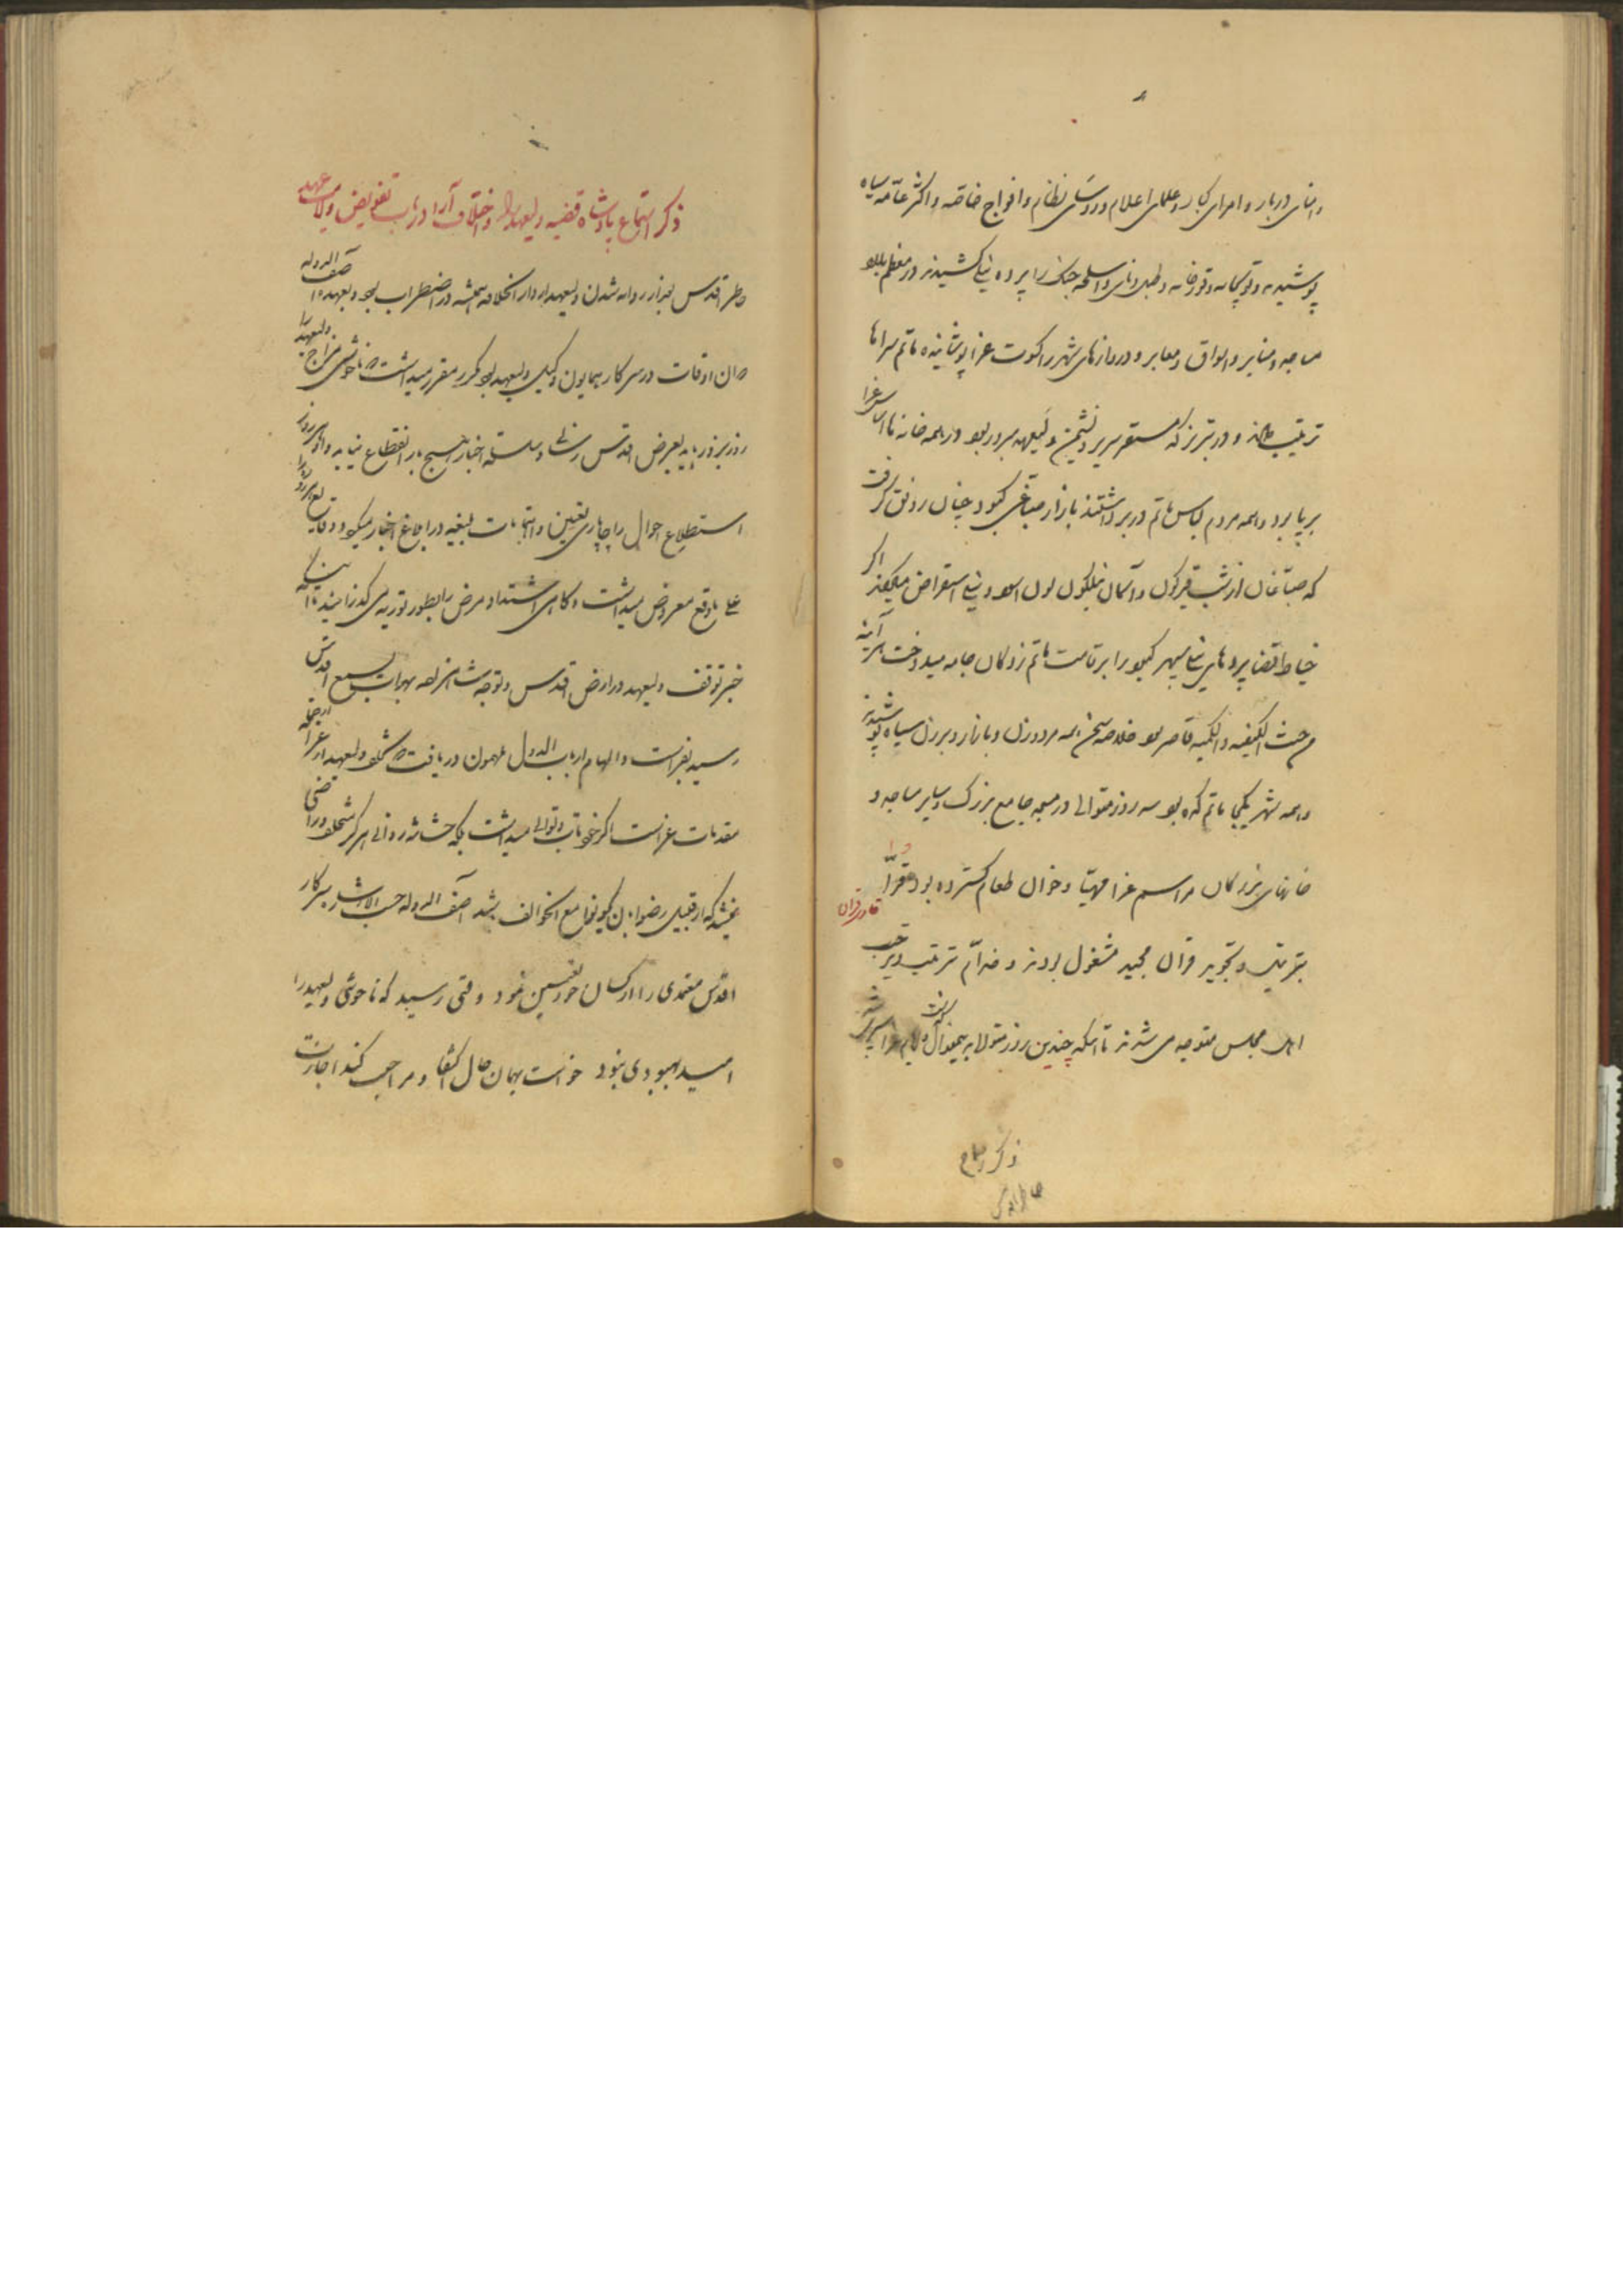 و امنای دربار و امرای کبار و علمای اعلام و رؤسای نظام و افواج خاصّه و اکثر عامّه سیاه
پوشیده و توپخانه و قورخانه و طبل و نای و اسلحه جنگ را پرده نیلی کشیدند و در معظم بلاد
مساجد و منابر و اسواق و معابر و دروازهای شهر را کسوت عزا پوشانیده ماتم سراها
ترتیب دادند و در تبریز که مستقر سریر و نشیمن ولیعهد مبرور بود در همه خانه‌ها اساس عزا
برپا بود و همه مردم لباس ماتم در بر داشتند بازار صباغی کبود چنان رونق گرفت
که صباغان از شب قیرگون و آسمان نیلگون لون اسود و نیلی استقراض میکردند اگر
خیاط قضا پردهای نیلی سپهر کبود را بر قامت ماتم زدگان جامه میدوخت هرآینه
من حیث الکیفیه و الکمیه قاصر بود خلاصه سخن همه مرد و زن و بازار و برزن سیاه پوشیدند
و همه شهر یکجا ماتم کده بود سه روز متوالی در مسجد جامع بزرگ و سایر مساجد و
خانهای بزرگان مراسم عزا مهیّا و خوان طعام گسترده بود و قرّا
قاری قرآن
بترتیل و تجوید قرآن مجید مشغول بودند و خدّام ترتیب و ترحیب
اهل مجلس متوجه می شدند تا اینکه چندین روز متوالی بهمین منوال گذشت
ذکر
خاطر اقدس
ذکر استماع پادشاه قضیه ولیعهد را و اختلاف آرا در باب تفویض ولایت عهد
خاطر اقدس بعد از روانه شدن ولیعهد از دار الخلافه همیشه در اضطراب بود و آصف الدوله
در آن اوقات در سرکار همایون وکیل ولیعهد بود مکرر مقرر میداشت که ناخوشی مزاج ولیعهد را
روز بروز باید بعرض اقدس رسانی و سلسله اخبار هیچ بار انقطاع نیابد و او هر روز
استطلاع احوال را چاپاری تعیین و اهتمامات بلیغه در ابلاغ اخبار میکرد و وقایع هر روز را
علی ما وقع معروض میداشت و گاهی اشتداد مرض را بطور توریه می گذرانید تا اینکه
خبر توقف ولیعهد در ارض اقدس و توجه شاهزاده بهرات بسمع اقدس
رسید بفراست و الهام ارباب الدول ملهمون دریافت که
مقدمات عزاست اگر خود تاب و توانی میداشت
نمیشد که از قبیل رضوا بان یکونوا مع الخوالف باشد آصف الدوله حسب الاشاره سرکار
اقدس معتمدی را از کسان خود تعیین نمود وقتی رسید که ناخوشی ولیعهد را
امید بهبودی نبود خواست بهمان حال اکتفا و مراجعت کند اجازت